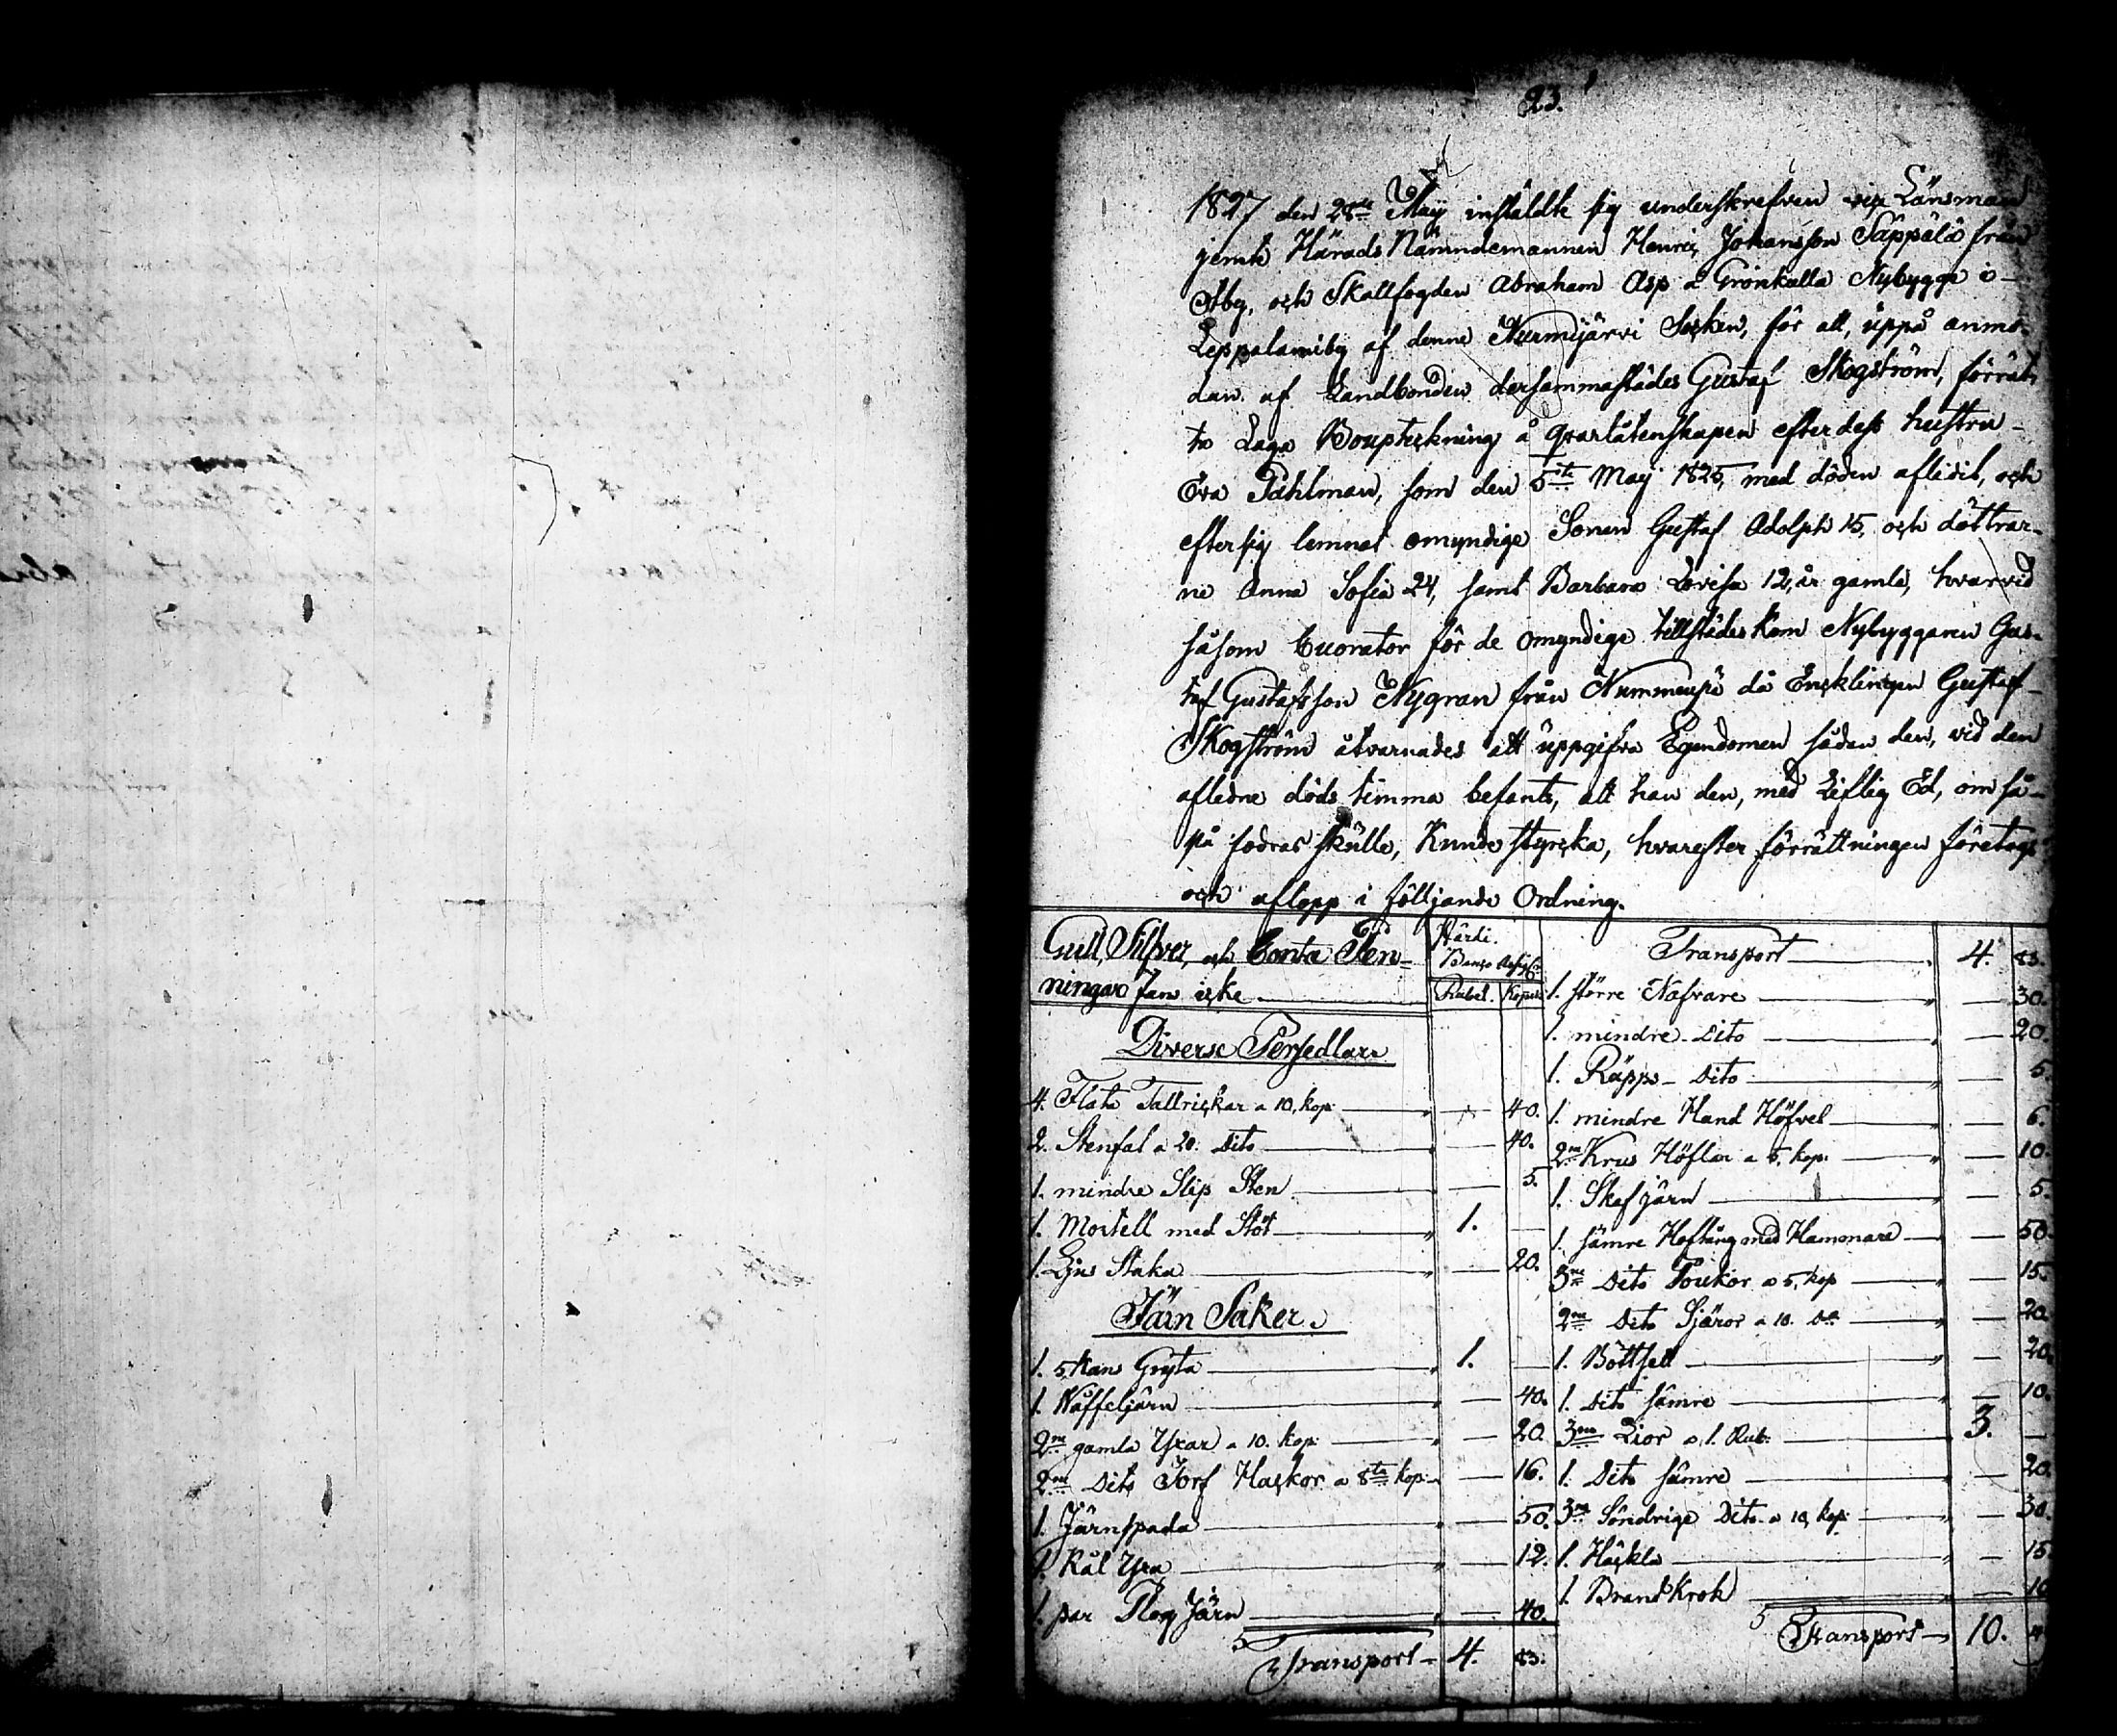 23.
1827 den 28de Maÿ instäldte sig underskrefven vice Länsman
jemte Härads Nämndemannen Henric Johansson Säppälä från
Åby, och Skallfogden Abraham Asp å Grönkulla Nybygge i
Leppälamiby af denne Nurmijärvi Socken, för att, uppå anmo-
dan af Landbonden dersammastädes Gustaf Skogström, förrät-
ta Laga Bouptekning å qvarlåtenskapen efter dess hustru
Eva Påhlman, som den 5te Maÿ 1825, med döden aflidit, och
efter sig lemnat omyndige Sonen Gustaf Adolph 15, och döttrar-
ne Anna Sofia 24, samt Barbara Lovisa 12, år gamle, hvarvid
såsom Cuorator för de omyndige tillstädes kom Nybyggaren Gus-
taf Gustafsson Nygran från Nummenpä då Encklingen Gustaf
Skogström åtvarnades att uppgifva Egendomen sådan den, vid den
afledne döds timma befants, att han den, med Liflig Ed, om så
på fodras skulle, Kunde styrcka, hvarefter förrättningen företogs
och aflopp i följjande Ordning.
Gull, Silfver, och Conta Pen-
ningar fans icke
Banco Assig:r
Rubel. Kopek
Diverse Persedlar
4. Flata Tallrickar a 10, kop: 40.
2. Stenfat a 20. Dito 40.
1. mindre Slip Sten 5.
1. Mortell med Stöt 1.
1. Ljus Staka 20.
Järn Saker.
1. 5, Kans Gryta 1.
1. Waffeljärn 40.
2ne gamla Yxar a 10. kop: 20.
2ne Dito Torf Hackor a 8ta kop: 16.
1. Järnspada 50.
1. Kål Yxa 12.
1. par Plog Järn 40.
Transport 4. 83.
Transport 4. 83.
1. större Nafvare 30.
1. mindre Dito 20.
1. Räpps Dito 5.
1. mindre Hand Höfvel 6.
2ne Krus Höflar a 5, kop: 10.
1. Skafjärn 5.
1. sämre Hoftång med Hammare 50.
3ne Dito a 5, kop 15.
2ne Dito a 10. Do 20.
1. 20.
1. Dito sämre 10.
3ne Lior a 1. Rub: 3.
1. Dito sämre 20.
3ne Söndrige Dito a 10, kop: 30.
1. Häckla 15.
1. Brand Krok 10
Transport 10.